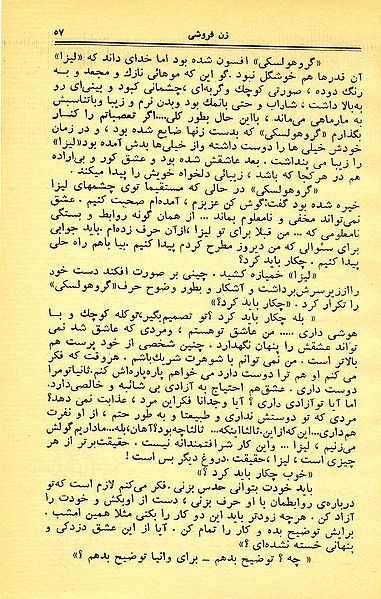 زن فروشی
۵۷
«گروهولسکی» افسون شده بود اما خدای داند که «لیزا»
آن قدرها هم خوشگل نبود. گو این که موهائی نازك و مجعد و به
رنگ دوده ، صورتی کوچك وگربه‌ای ،چشمانی کبود و بینی‌ای رو
به‌بالا داشت ، شاداب و حتی بانمك بود وبدن نرم و زیبا وباتناسبش
به مارماهی می‌ماند ، بااین حال بطور کلی....اگر تعصباتم را کنار
بگذارم «گروهولسکی» که بدست زنها ضایع شده بود ، و در زمان
خودش خیلی ها را دوست داشته واز خیلی‌ها بدش آمده بود«لیزا»
را زیبا می پنداشت . بعد عاشقش شده بود و عشق کور و بی‌اراده
هم در هرکجا که باشد ، زیبائی دلخواه خویش را پیدا میکند .
«گروهولسکی» در حالی که مستقیما توی چشمهای لیزا
خیره شده بود گفت:گوش کن عزیزم ، آمده‌ام صحبت کنیم . عشق
نمی‌تواند مخفی و نامعلوم بماند ... از همان گونه روابط و بستگی
نامعلومی که ... من قبلا برای تو لیزا ،ازآن حرف زده‌ام .باید جوابی
برای سئوالی که من دیروز مطرح کردم پیدا کنیم .بیا باهم راه حلی
پیدا کنیم . چکار باید کرد؟
«لیزا» خمیازه کشید . چینی بر صورت افکند دست خود
راازز یرسرش‌برداشت و آشکار و بطور وضوح حرف«گروهولسکی»
را تکرار کرد . «چکار باید کرد؟»
« بله چکار باید کرد؟تو تصمیم‌بگیر،توکله کوچك و با
هوشی داری ..... من عاشق توهستم ، ومردی که عاشق شد نمی
تواند عشقش را پنهان نگهدارد . چنین شخصی از خود پرست هم
بالاتر است . من نمی توانم با شوهرت شریك‌باشم . هروقت که فکر
می کنم او هم ترا دوست دارد می خواهم پاره‌پاره‌اش کنم.ثانیاتومرا
دوست داری . عشق‌هم احتیاج به آزادی بی شائبه و خالصی‌دارد.
اما آیا توآزادی داری ؟ آیا وجدانا فکراین مرد ، عذابت نمی دهد؟
مردی که تو دوستش نداری و طبیعتا و به طور حتم ، از او نفرت
هم‌داری...این‌که‌ازاین.ثالثااینکه... ثالثاچه‌بود؟آهان،بله...ماداریم‌گولش
می‌زنیم ، لیزا ... واین کار شرافتمندانه نیست . حقیقت‌برتر از هر
چیزی است ، لیزا ،حقیقت.دروغ دیگر بس است !
«خوب چکار باید کرد ؟»
باید خودت بتوانی حدس بزنی .فکر می‌کنم لازم است که‌تو
درباره‌ی روابطمان با او حرف بزنی ، دست از اوبکش و خودت را
آزاد کن . هرچه زودتر باید این دو کار را بکنی مثلا همین امشب .
برایش توضیح بده و کار را تمام کن . آیا از این عشق دزدکی و
پنهانی خسته نشده‌ای ؟»
« چه ؟ توضیح بدهم ــ برای وانیا توضیح بدهم ؟»